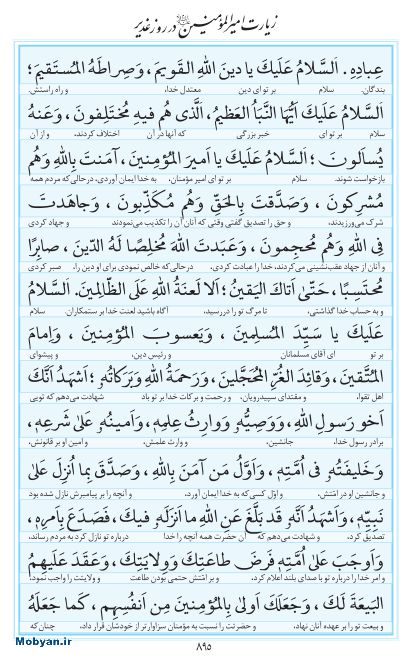 زیارت امیرالمؤمنین در روز غدیر
عِبادِهِ. اَلسَّلامُ عَلَیْكَ یا دینَ اللهِ الْقَویمَ، وَ صِراطَهُ الْمُسْتَقیمَ؛
بندگان. سلام بر تو ای دین معتدل خدا، و راه راستش.
اَلسَّلامُ عَلَیْكَ اَیُّهَا النَّبَأُ الْعَظیمُ، اَلَّذی هُمْ فیهِ مُخْتَلِفونَ، وَ عَنْهُ
سلام بر تو ای خبر بزرگی که آنها در آن اختلاف کردند، و از آن
یُسْأَلونَ؛ اَلسَّلامُ عَلَیْكَ یا اَمیرَ الْمُؤْمِنینَ، آمَنْتَ بِاللهِ وَ هُمْ
بازخواست شوند. سلام بر تو ای امیر مؤمنان، به خدا ایمان آوردی، درحالی‌که مردم همه
مُشْرِکونَ، وَ صَدَّقْتَ بِالْحَقِّ وَ هُمْ مُکَذِّبونَ، وَ جاهَدْتَ
شرک می‌ورزیدند، و حق را تصدیق گفتی وقتی که آنان آن را تکذیب می‌نمودند و جهاد کردی
فِی اللهِ وَ هُمْ مُحْجِمونَ، وَ عَبَدْتَ اللهَ مُخْلِصًا لَهُ الدّینَ، صابِرًا
و آنان از جهاد عقب‌نشینی می‌کردند، خدا را عبادت کردی، درحالی‌که خالص نمودی برای او دین را، صبر کردی
مُحْتَسِبًا، حَتّىٰ اَتاكَ الْیَقینُ؛ اَلا لَعْنَةُ اللهِ عَلَى الظّالِمینَ. اَلسَّلامُ
و به حساب خدا گذاشتی، تا مرگ تو را دررسید، آگاه باشید لعنت خدا بر ستمکاران. سلام
عَلَیْكَ یا سَیِّدَ الْمُسْلِمینَ، وَ یَعْسوبَ الْمُؤْمِنینَ، وَ اِمامَ
بر تو ای آقای مسلمانان و رئیس دین، و پیشوای
الْمُتَّقینَ، وَ قائِدَ الْغُرِّ الْمُحَجَّلینَ، وَ رَحْمَةُ اللهِ وَ بَرَکاتُهُ؛ اَشْهَدُ اَنَّكَ
اهل تقوا، و مقتدای سپیدرویان. و رحمت و برکات خدا بر تو باد شهادت می‌دهم که تویی
اَخو رَسولِ اللهِ، وَ وَصِیُّهُ، وَ وارِثُ عِلْمِهِ، وَ اَمینُهُ عَلىٰ شَرْعِهِ،
برادر رسول خدا، جانشین، و وارث علمش، و امین او بر قانونش،
وَ خَلیفَتُهُ فی اُمَّتِهِ، وَ اَوَّلُ مَنْ آمَنَ بِاللهِ، وَ صَدَّقَ بِما اُنْزِلَ عَلىٰ
و جانشین او در امّتش، و اوّل کسی که به خدا ایمان آورد، و آنچه را بر پیامبرش نازل شده بود
نَبِیِّهِ، وَ اَشْهَدُ اَنَّهُ قَدْ بَلَّغَ عَنِ اللهِ ما اَنْزَلَهُ فیكَ، فَصَدَعَ بِاَمْرِهِ،
تصدیق کرد، و شهادت می‌دهم که آن حضرت همه آنچه را خدا درباره تو نازل کرد به مردم رساند،
وَ اَوْجَبَ عَلىٰ اُمَّتِهِ فَرْضَ طاعَتِكَ وَ وِلایَتِكَ، وَ عَقَدَ عَلَیْهِمُ
و امر خدا را درباره تو با صدای بلند اعلام کرد، و بر امّتش حتمی بودن طاعت و ولایتت را واجب نمود،
الْبَیْعَةَ لَكَ، وَ جَعَلَكَ اَوْلىٰ بِالْمُؤْمِنینَ مِنْ اَنْفُسِهِمْ، کَما جَعَلَهُ
و بیعت تو را بر عهده آنان نهاد، و حضرتت را نسبت به مؤمنان سزاوارتر از خودشان قرار داد، چنان‌که
۸۹۵
Mobyan.ir